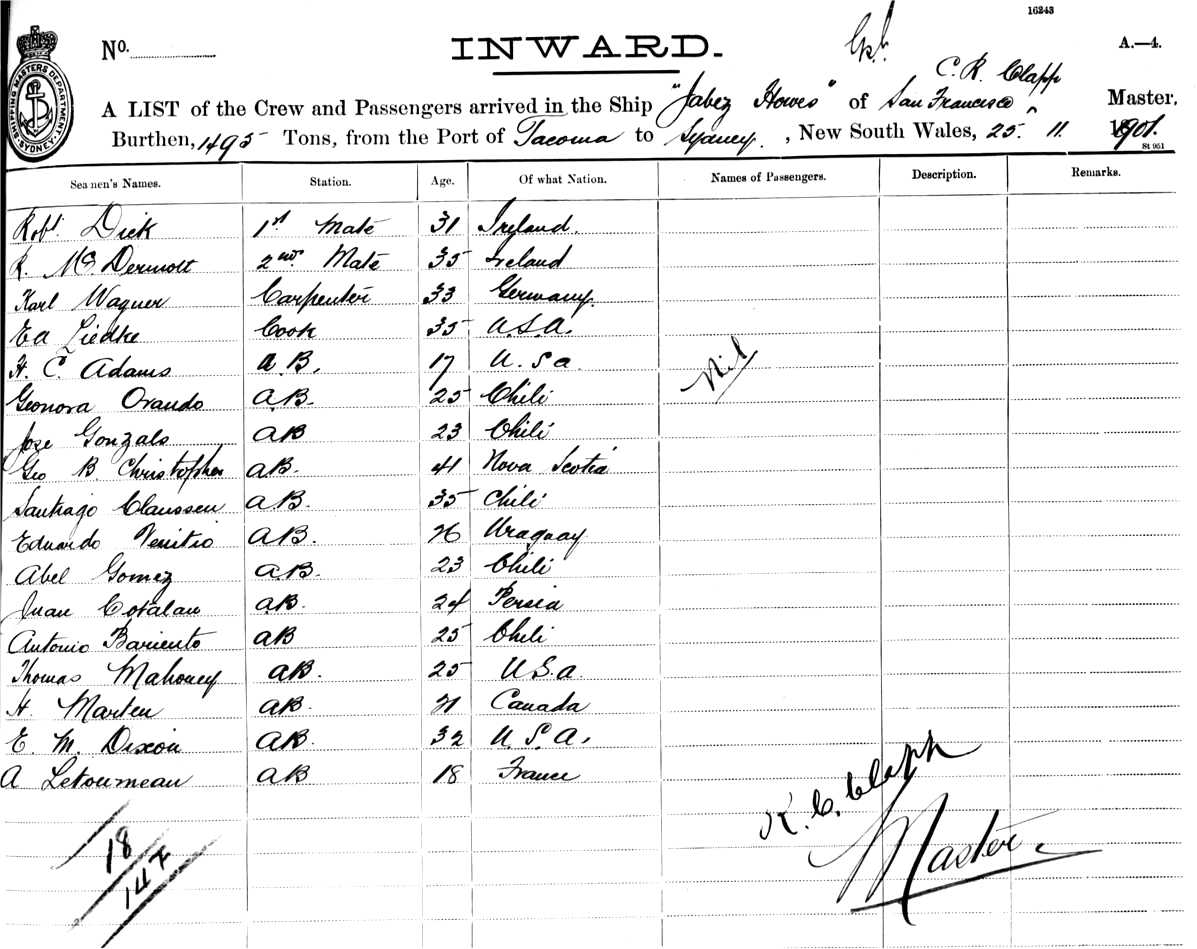 16243
No.
INWARD.
A.—4.
SHIPPING MASTERS DEPARTMENT SYDNEY
C. R. Clapp
A LIST of the Crew and Passengers arrived in the Ship "Jabez Howes" of San Francisco, Master,
Burthen, 1495 Tons, from the Port of Tacoma to Sydney, New South Wales, 25. 11. 1901.
St 951
Seamen's Names. Station. Age. Of what Nation. Names of Passengers. Description. Remarks.
Robt. Dick 1st Mate 31 Ireland.
R. McDermott 2nd Mate 35 Ireland
Karl Wagner Carpenter 33 Germany.
Ed Liedke Cook 35 U.S.A.
H. C. Adams A.B. 17 U.S.a
Geonora Orando A.B. 25 Chili
Nil
Jose Gonzals AB 23 Chili
Geo B. Christopher AB. 41 Nova Scotia
Santiago Claussen AB. 35 Chili
Eduardo A.B. Uruguay
Abel Gomez AB. 23 Chili
Juan Cotalan AB. 24 Persia
Antonio Bariento AB 25 Chili
Thomas Mahoney AB. 25 U.S.a.
H. Marten AB. 21 Canada
E. M. Dixon AB. 32 U.S.A.
A Letourneau AB 18 France
K. C. Clapp
Master.
18
147